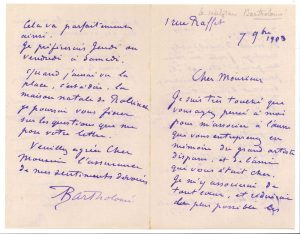 1 rue Raffet
7 9bre 1903
Cher Monsieur
Je suis très touché que
vous ayez pensé à moi
pour m'associer à l'œuvre
que vous entreprenez en
mémoire du grand artiste
disparu, et de l'ami
qui vous était cher.
Je m'y associerai de
tout cœur, et
plus possible les
Cela va parfaitement
ainsi.
Je préférerais Jeudi ou
vendredi à Samedi.
Quand j'aurai vu la
place, c'est à dire, la
maison natale de
je pourrai vous fixer
sur les questions que me
pose votre lettre.
Veuillez agréer Cher
Monsieur l'assurance
de mes sentiments dévoués
Bartholomé